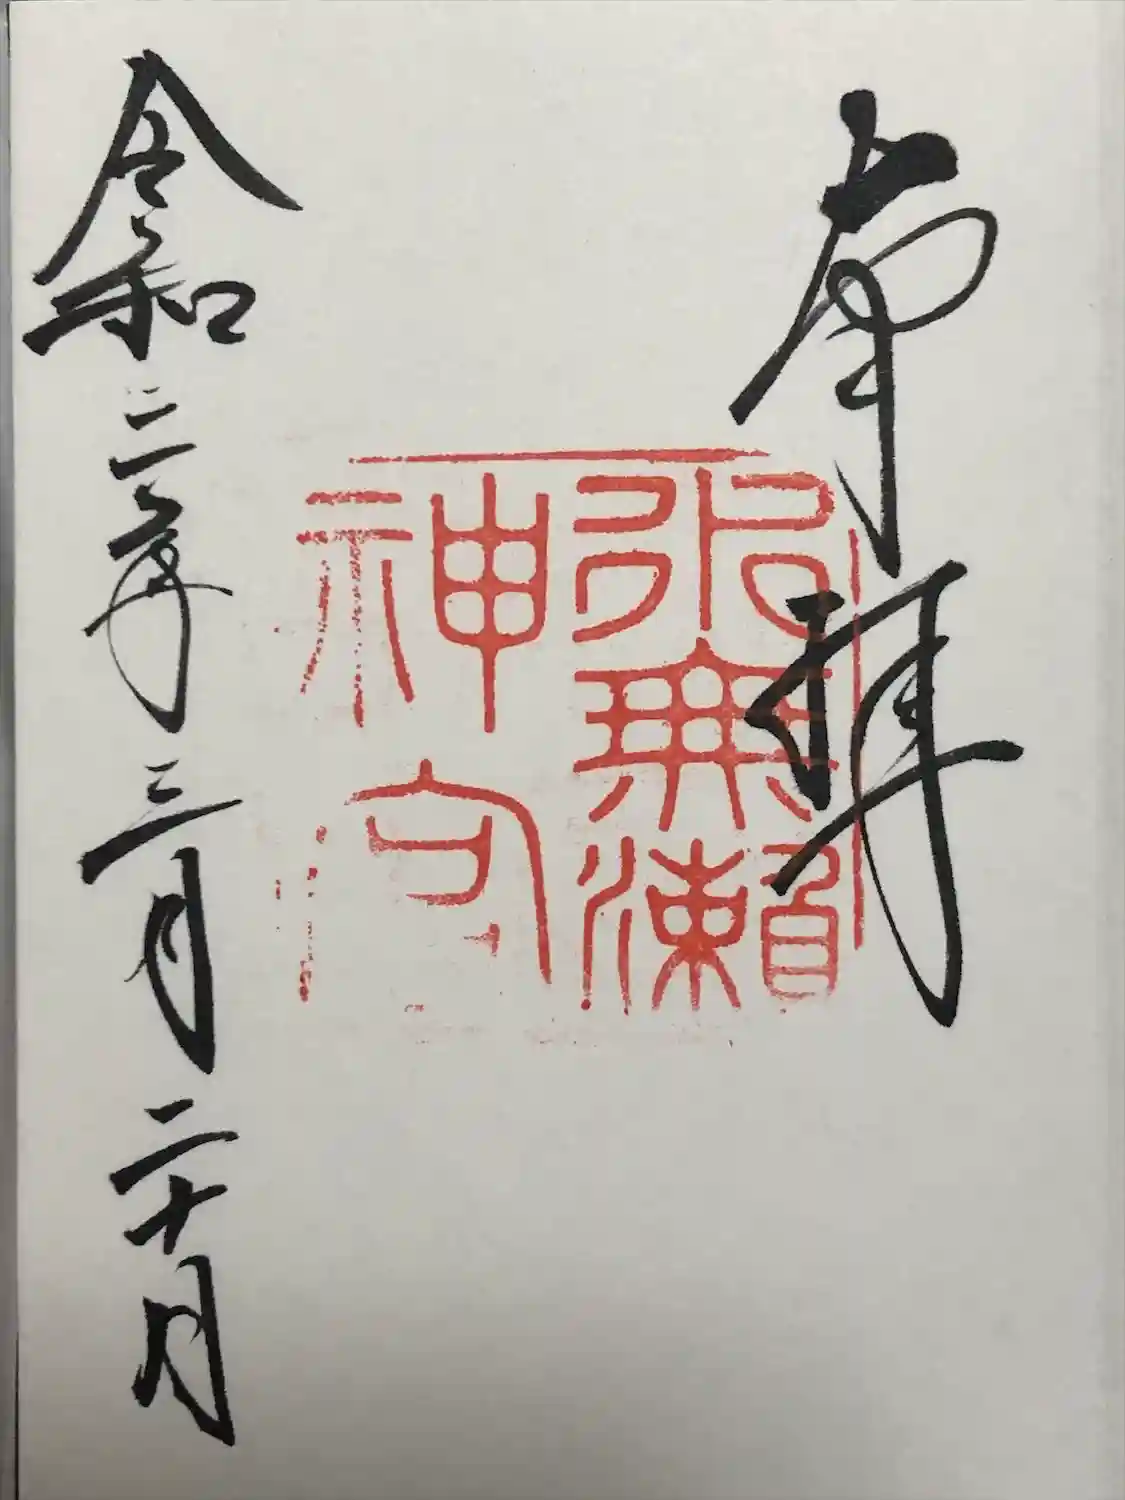 奉拝
水無瀬
神宮
令和二年三月二十日